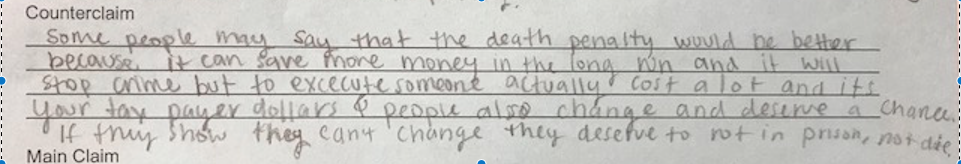 Counterclaim
Some people may say that the death penalty would be better
because it can save more money in the long run and it will
stop crime but to excecute someone actually cost a lot and its
your tax payer dollars & people also change and deserve a chance.
If they show they cant change they deserve to rot in prison, not die.
Main Claim